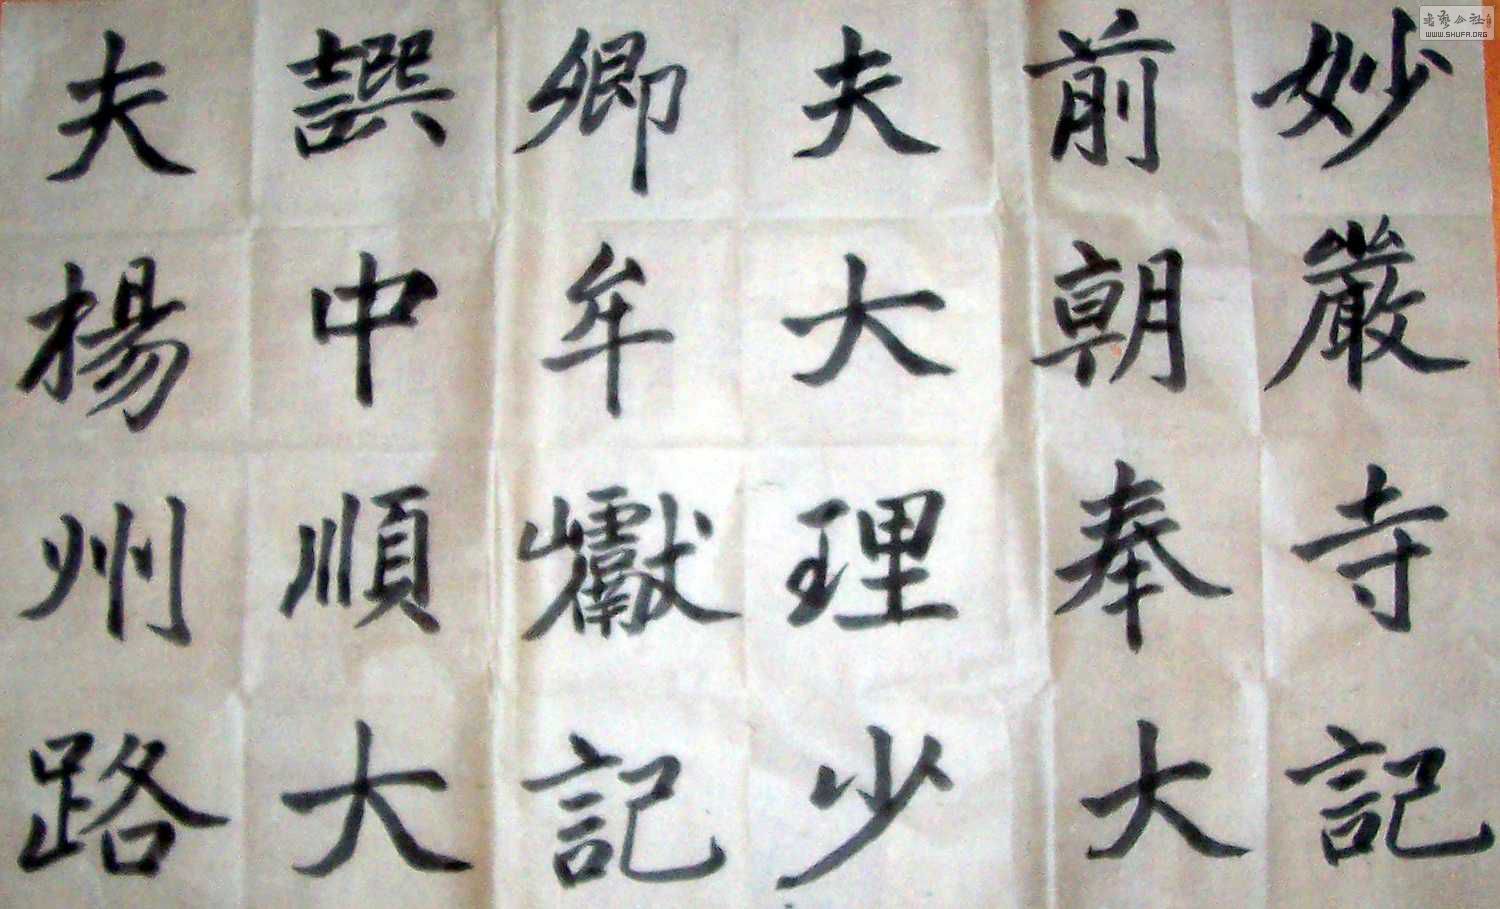 妙嚴寺記
前朝奉大
夫大理少
卿牟巘記
譔中順大
夫楊州路
書藝公社
WWW.SHUFA.ORG